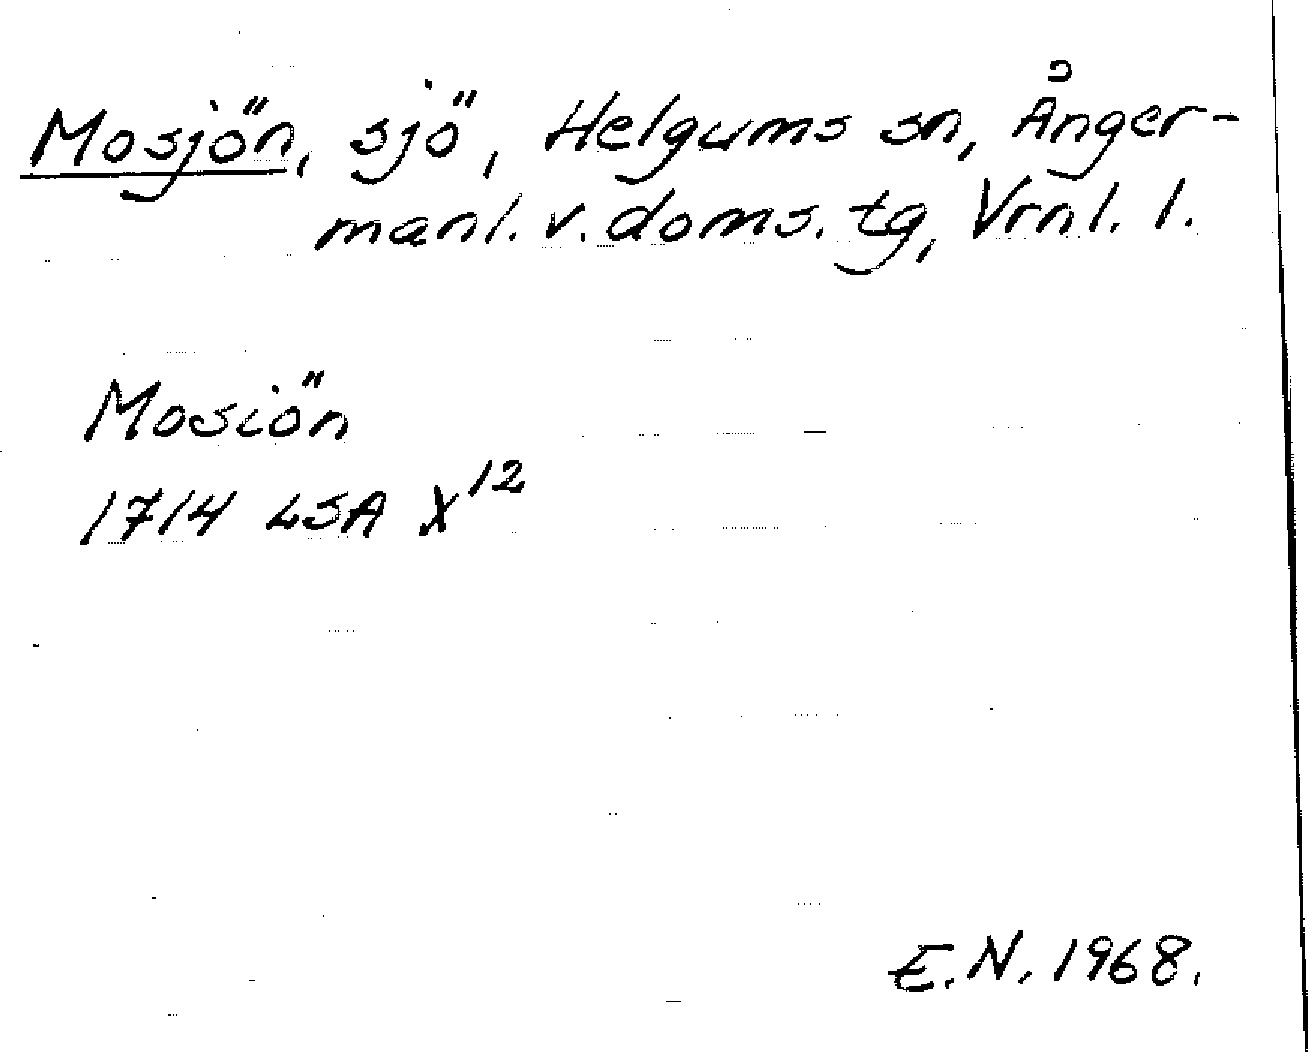 Mosjön, sjö, Helgums sn, Ånger-
manl. v. doms. tg, Vrnl. l.
Mosiön
1714 LSA X¹²
E.N. 1968.